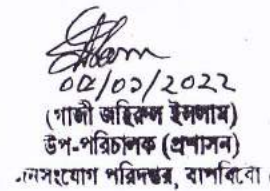 ০৫/০১/2022
(গাজী জহিরুল ইসলাম)
উপ-পরিচালক (প্রশাসন)
জনসংযোগ পরিদপ্তর, বাপবিবো